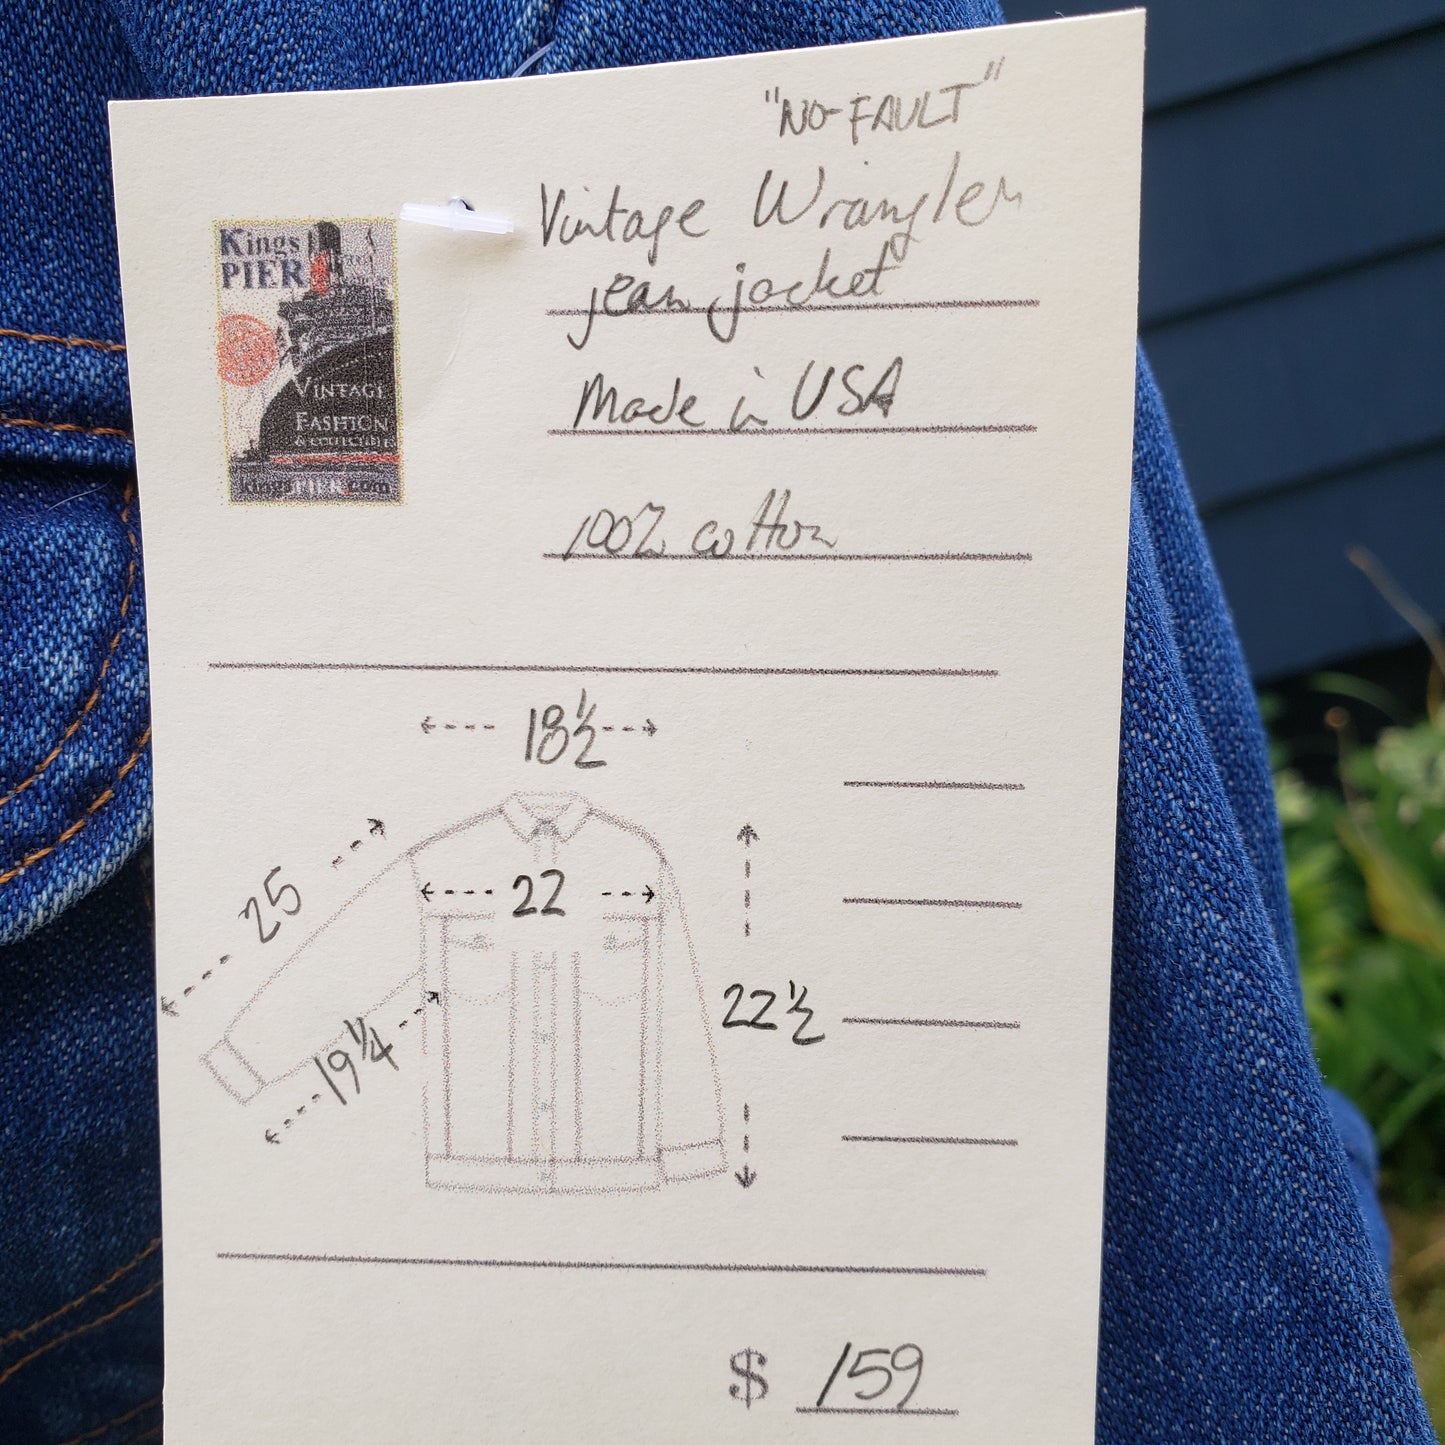 "NO-FAULT"
Vintage Wrangler
jean jacket
Made in USA
100% cotton
Kings
PIER
VINTAGE
FASHION
& COLLECTIBLES
kingsPIER.com
18 1/2
25
22
22 1/2
19 1/4
$ 159